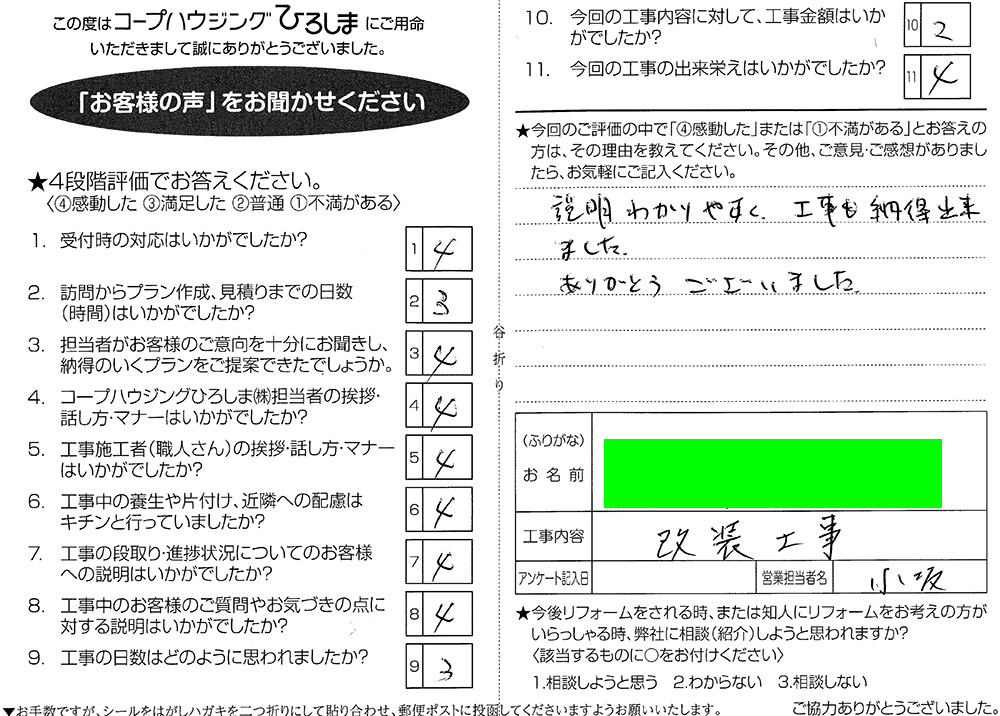 この度はコープハウジングひろしまにご用命
いただきまして誠にありがとうございました。
「お客様の声」をお聞かせください
★4段階評価でお答えください。
〈④感動した ③満足した ②普通 ①不満がある〉
1. 受付時の対応はいかがでしたか?
1 4
2. 訪問からプラン作成、見積りまでの日数
(時間)はいかがでしたか?
2 3
3. 担当者がお客様のご意向を十分にお聞きし、
納得のいくプランをご提案できたでしょうか。
3 4
4. コープハウジングひろしま㈱担当者の挨拶・
話し方・マナーはいかがでしたか?
4 4
5. 工事施工者(職人さん)の挨拶・話し方・マナー
はいかがでしたか?
5 4
6. 工事中の養生や片付け、近隣への配慮は
キチンと行っていましたか?
6 4
7. 工事の段取り・進捗状況についてのお客様
への説明はいかがでしたか?
7 4
8. 工事中のお客様のご質問やお気づきの点に
対する説明はいかがでしたか?
8 4
9. 工事の日数はどのように思われましたか?
9 3
▼お手数ですが、シールをはがしハガキを二つ折りにして貼り合わせ、郵便ポストに投函してくださいますようお願いいたします。
谷折り
10. 今回の工事内容に対して、工事金額はいか
がでしたか?
10 2
11. 今回の工事の出来栄えはいかがでしたか?
11 4
★今回のご評価の中で「④感動した」または「①不満がある」とお答えの
方は、その理由を教えてください。その他、ご意見・ご感想がありまし
たら、お気軽にご記入ください。
説明わかりやすく、工事も納得出来
ました。
ありがとうございました。
(ふりがな)
お名前
工事内容 改装工事
アンケート記入日 営業担当者名 小坂
★今後リフォームをされる時、または知人にリフォームをお考えの方が
いらっしゃる時、弊社に相談(紹介)しようと思われますか?
〈該当するものに○をお付けください〉
1.相談しようと思う 2.わからない 3.相談しない
ご協力ありがとうございました。